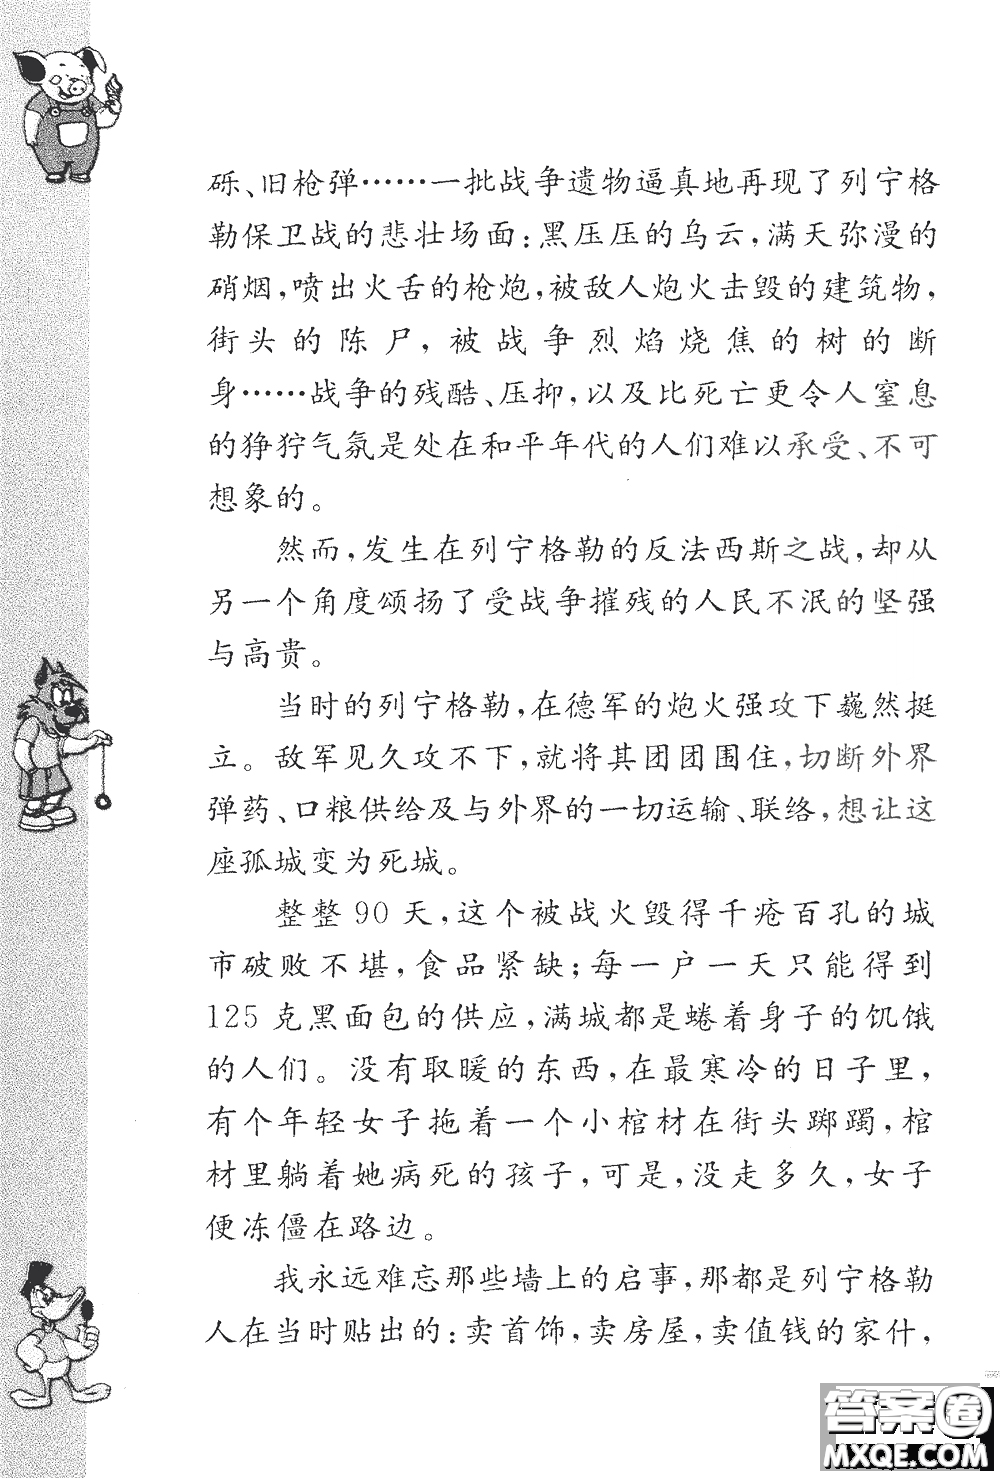 砾、旧枪弹……一批战争遗物逼真地再现了列宁格
勒保卫战的悲壮场面:黑压压的乌云,满天弥漫的
硝烟,喷出火舌的枪炮,被敌人炮火击毁的建筑物,
街头的陈尸,被战争烈焰烧焦的树的断
身……战争的残酷、压抑,以及比死亡更令人窒息
的狰狞气氛是处在和平年代的人们难以承受、不可
想象的。
然而,发生在列宁格勒的反法西斯之战,却从
另一个角度颂扬了受战争摧残的人民不泯的坚强
与高贵。
当时的列宁格勒,在德军的炮火强攻下巍然挺
立。敌军见久攻不下,就将其团团围住,切断外界
弹药、口粮供给及与外界的一切运输、联络,想让这
座孤城变为死城。
整整90天,这个被战火毁得千疮百孔的城
市破败不堪,食品紧缺;每一户一天只能得到
125克黑面包的供应,满城都是蜷着身子的饥饿
的人们。没有取暖的东西,在最寒冷的日子里,
有个年轻女子拖着一个小棺材在街头踯躅,棺
材里躺着她病死的孩子,可是,没走多久,女子
便冻僵在路边。
我永远难忘那些墙上的启事,那都是列宁格勒
人在当时贴出的:卖首饰,卖房屋,卖值钱的家什,
答案卷
MXQE.COM